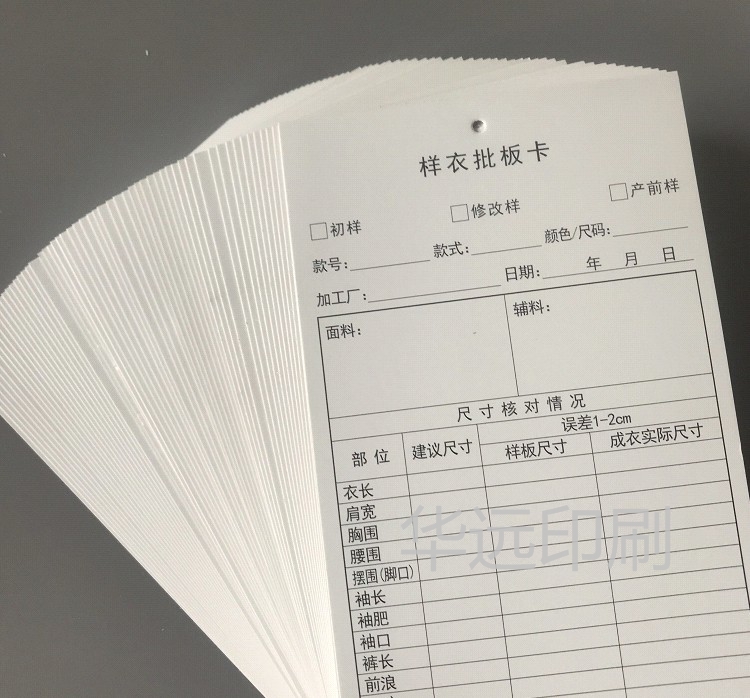 样衣批板卡
□初样 □修改样 □产前样
款号: 款式: 颜色/尺码:
加工厂: 日期: 年 月 日
面料: 辅料:
尺寸核对情况
误差1-2cm
部位 建议尺寸 样板尺寸 成衣实际尺寸
衣长
肩宽
胸围
腰围
摆围(脚口)
袖长
袖肥
袖口
裤长
前浪
华远印刷